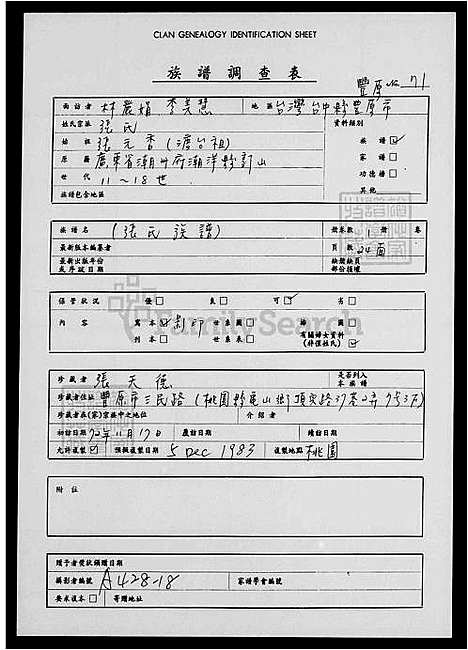 CLAN GENEALOGY IDENTIFICATION SHEET
族譜調查表
豐原 No 71
面訪者 林農娟 李美慧 地區 台灣台中縣豐原市
姓氏宗派 張氏 資料類別
始祖 張元香(渡台祖) 族譜 ☑
原籍 廣東省潮州府潮洋縣 山 家譜 □
世代 11~18世 功德譜 □
族譜包含地區 其他
族譜名 (張氏族譜) 冊卷數 1 冊 卷
最新版本編纂者 頁數 24面
最新出版年份或序跋日期 缺頒缺頁部份損壞
保管狀況 優 □ 良 □ 可 ☑ 劣 □
內容 寫本 ☑ 影印 世系圖 □ 繪圖 □
刊本 □ 世系表 □ 有關婦女資料(祥僅姓氏) ☑
珍藏者 張天德 是否列入本族譜
珍藏者住址 豐原市三民路(桃園縣龜山鄉頂興路37巷2弄7號3F)
珍藏者在(家)宗族中之地位 介紹者
初訪日期 72年11月17日 屢訪日期 續訪日期
允許複製 ☑ 預擬複製日期 5 Dec 1983 複製地點 桃園
附註
贈予者獎狀頒贈日期
攝影者編號 A428-18 家譜學會編號
要求復本 □ 寄贈地址
FamilySearch